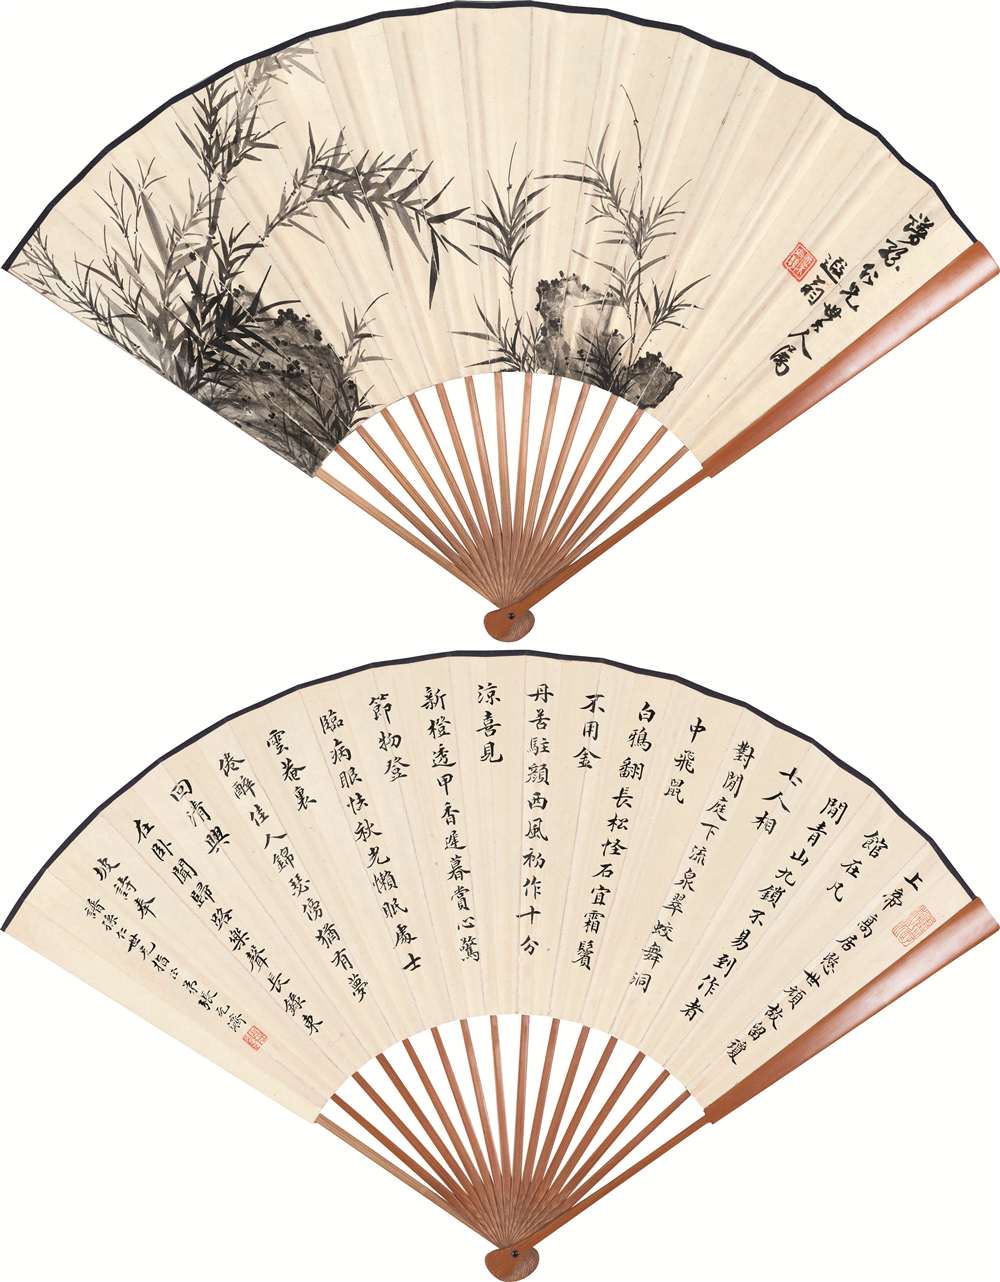 世大人属
遐翁
上帝高居愍世頑故留瓊
館在凡
間青山九鎖不易到作者
七人相
對閒庭下流泉翠蛟舞洞
中飛鼠
白鴉翻長松怪石宜霜鬢
不用金
丹苦駐顏西風初作十分
涼喜見
新橙透甲香遲暮賞心驚
節物登
臨病眼怯秋光懶眠處士
雲菴裏
倦醉佳人錦瑟傍猶有夢
回清興
在臥聞歸路樂聲長錄東
坡詩奉
孫仁世兄指正弟張元濟